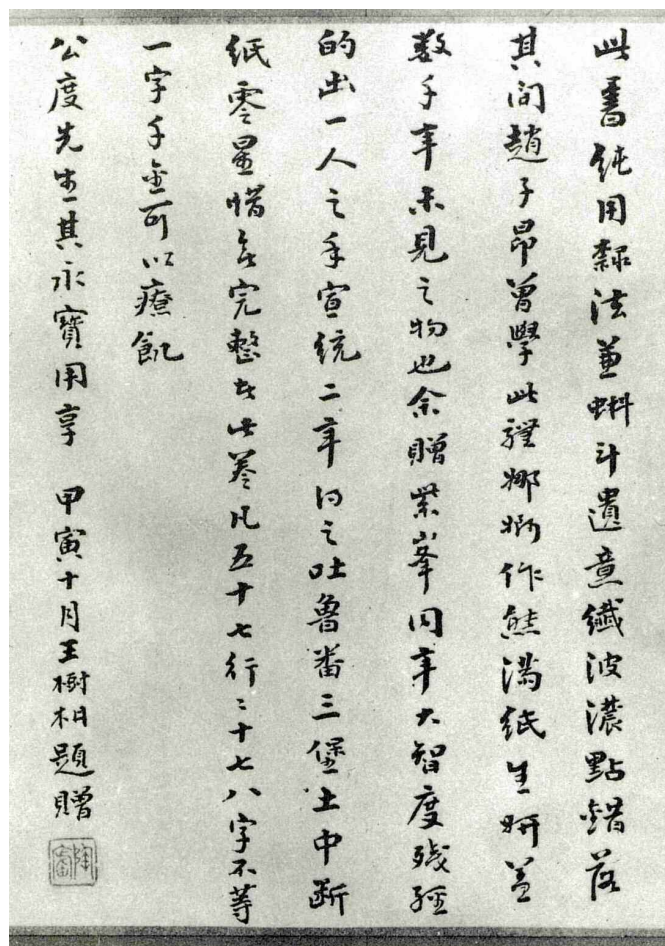 此書純用隸法兼蝌斗遺意纖波濃點錯落
其間趙子昂曾學此種娜婀作態滿紙生妍蓋
数千年未見之物也余贈紫峯同年大智度殘經
的出一人之手宣統二年得之吐魯番三堡土中断
紙零星惜無完整者此卷凡五十七行行十七八字不等
一字千金可以療飢
公度先生其永寶用享 甲寅十月王樹枏題贈
陶廬